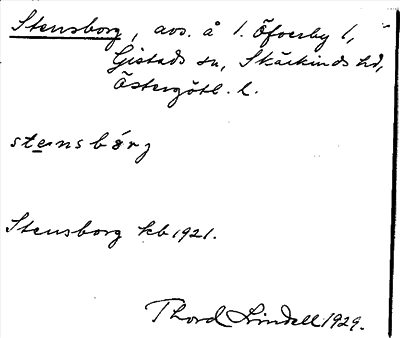 Stensborg, avs. å 1. Öfverby 1,
Gistads sn, Skärkinds hd,
Östergötl. l.
stensbórg
Stensborg kb 1921.
Thord Lindell 1929.